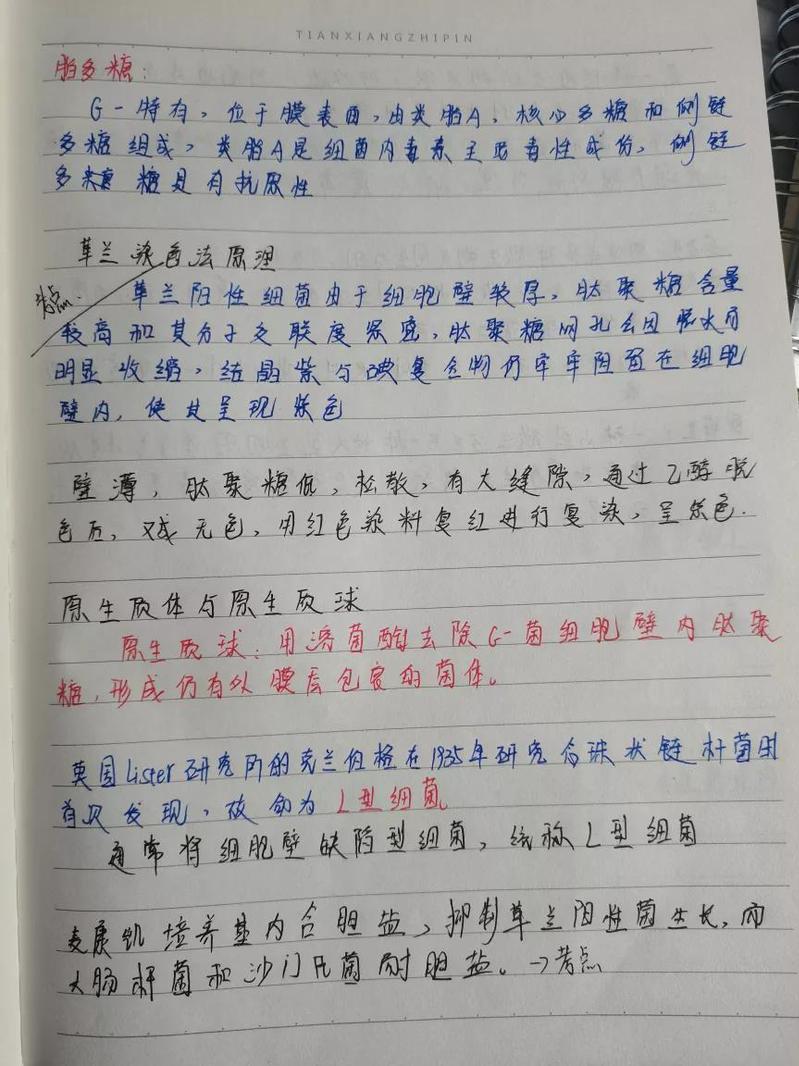 TIANXIANGZHIPIN
脂多糖:
G-特有，位于膜表面，由类脂A，核心多糖和侧链
多糖组成，类脂A是细菌内毒素主要毒性成份，侧链
多糖具有抗原性
革兰染色法原理
考点.
革兰阳性细菌由于细胞壁较厚，肽聚糖含量
较高和其分子交联度紧密，肽聚糖网孔会因脱水而
明显收缩，结晶紫与碘复合物仍牢牢阻留在细胞
壁内，使其呈现紫色
壁薄，肽聚糖低，松散，有大缝隙，通过乙醇脱
色后，又成无色，用红色染料复红进行复染，呈红色.
原生质体与原生质球
原生质球：用溶菌酶去除G-菌细胞壁内肽聚
糖，形成仍有外膜层包裹的菌体。
英国Lister研究所的克兰伯格在1935年研究念珠状链杆菌时
首次发现，故命为L型细菌
通常将细胞壁缺陷型细菌，统称L型细菌
麦康凯培养基内含胆盐，抑制革兰阳性菌生长，而
大肠杆菌和沙门氏菌耐胆盐。→考点